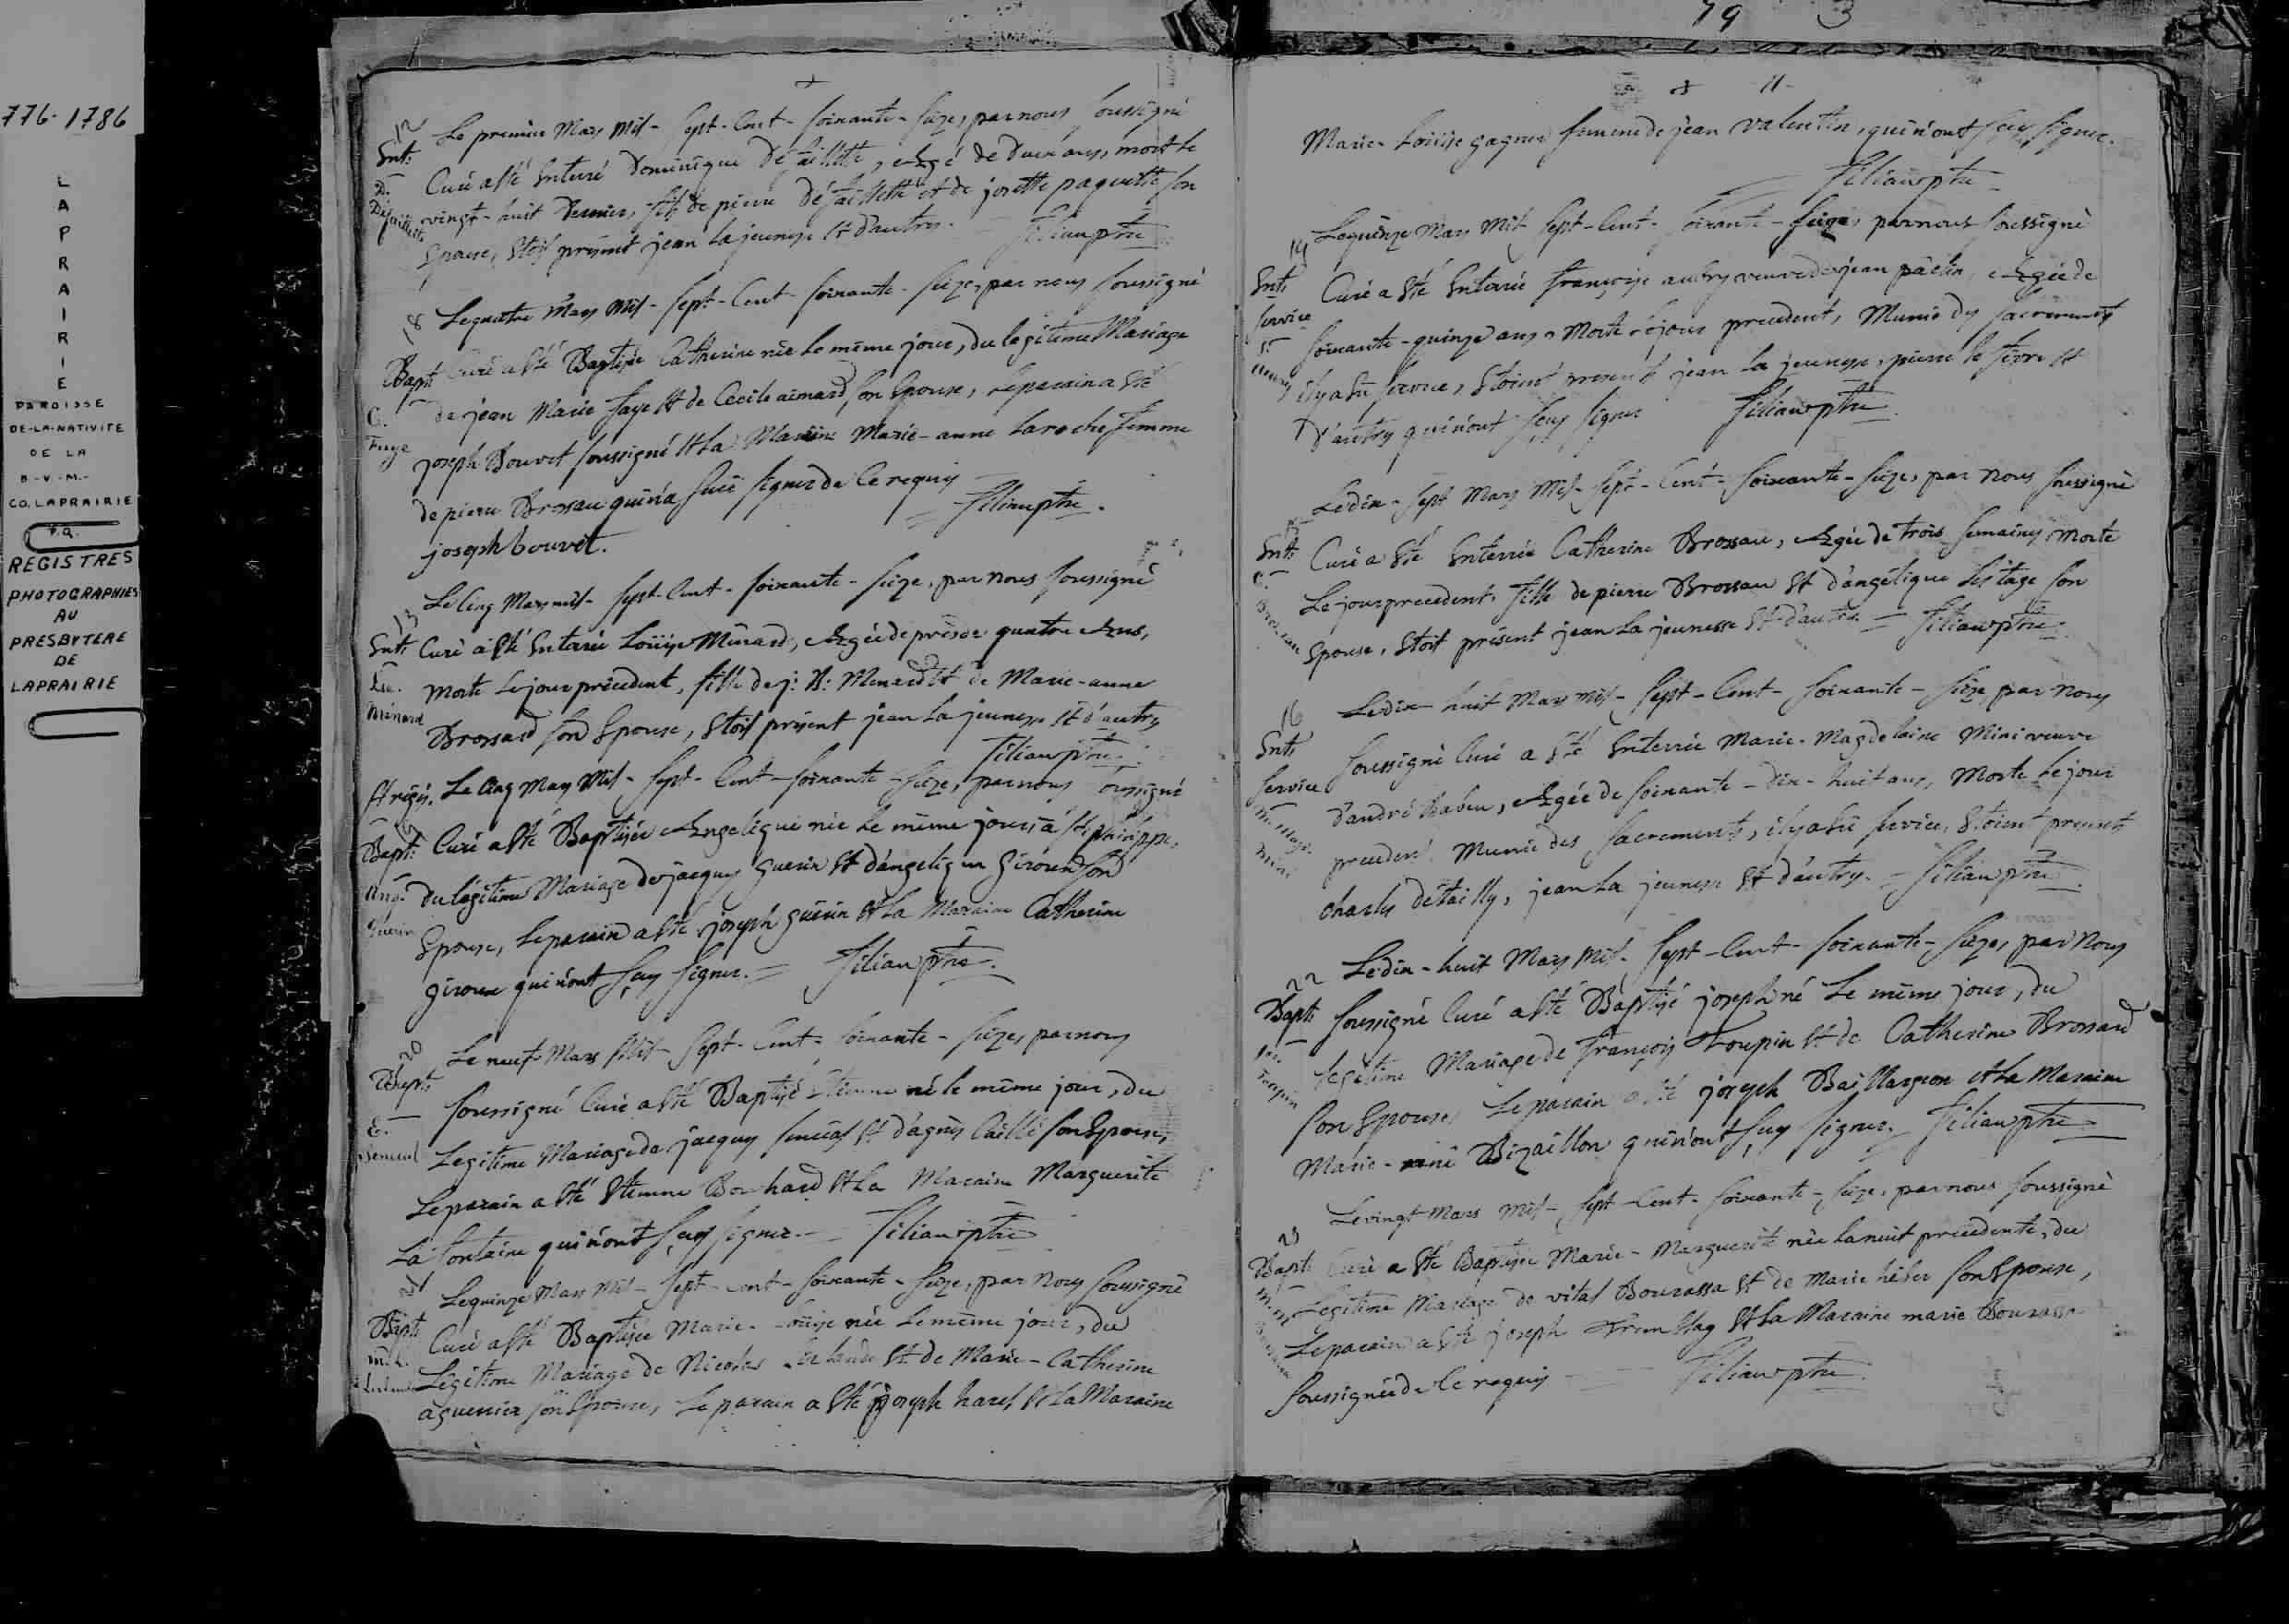 776-1786
LAPRAIRIE
PAROISSE
DE-LA-NATIVITE
DE LA
B-V-M-
CO. LAPRAIRIE
P.Q.
REGISTRES
PHOTOGRAPHIES
AU
PRESBYTERE
DE
LAPRAIRIE
12
Le premier Mars Mil-Sept-Cent-Soixante-Seize, par nous soussigné
Ent:
Curé a Eté Enterré Dominique
Agé de Deux ans, mort le
vingt-huit Dernier, fils de pierre
et de josette paquette son
Epouse, Etoit présent jean la jeunesse Et d'autres. Filiau ptre
18
Le quatre Mars Mil-Sept-Cent-Soixante-Seize, par nous soussigné
Bapt:
Curé a Eté Baptisée Catherine née le même jour, du legitime Mariage
C.
de jean Marie faye Et de Cecile aimard son Epouse, Le parain a Eté
Faye
joseph Bouvet soussigné Et la Maraine Marie-anne Laroche femme
de pierre Brosseau qui n'a sceu signer de ce requis
joseph bouvet. Filiau ptre.
13
Le Cinq Mars mil-Sept-Cent-Soixante-Seize, par nous soussigné
Ent:
Curé a Eté Enterrée Loüise Ménard, Agée de près de quatre Ans,
Lu.
morte Le jour précedent, fille de j: B: Menard Et de Marie-anne
Ménard
Brossard son Epouse, Etoit présent jean la jeunesse Et d'autres
Filiau ptre.
Le Cinq Mars Mil-Sept-Cent-Soixante-Seize, par nous soussigné
Bapt:
Curé a Eté Baptisée Angelique née Le même jour, à St philippe,
Ang.
du légitime Mariage de jacques Guerin Et d'angelique Giroux son
Guerin
Epouse, Le parain a Eté joseph guerin Et la Maraine Catherine
Giroux qui n'ont sçu signer. = Filiau ptre.
20
Le neuf Mars Mil-Sept-Cent-Soixante-Seize, par nous
Bapt:
soussigné Curé a Eté Baptisé Etienne né le même jour, du
E.
Legitime Mariage de jacques Senécal Et d'agnès Caillé son Epouse,
Senécal
Le parain a Eté Etienne Et la Maraine Marguerite
La fontaine qui n'ont sçu signer. - Filiau ptre
21
Le quinze Mars Mil-Sept-Cent-Soixante-Seize, par Nous soussigné
Bapt:
Curé a Eté Baptisée Marie-Loüise née Le même jour, du
m. L.
Légitime Mariage de Nicolas Et de Marie-Catherine
son Epouse, Le parain a Eté joseph harel Et la Maraine
19 3
Marie-Loüise gagner femme de jean valentin, qui n'ont sçu signer.
Filiau ptre
14
Le quinze Mars Mil-Sept-Cent-Soixante-Seize, par nous soussigné
Ent:
Curé a Eté Enterrée Françoise veuve de jean Agée de
Service
Soixante-quinze ans, Morte le jour precedent, Munie des sacrements
il y a Eü service, Etoient present jean la jeunesse, pierre le fevre Et
d'autres qui n'ont sçu signer Filiau ptre
15
Le dix-sept Mars Mil-Sept-Cent-Soixante-Seize, par Nous soussigné
Ent:
Curé a Eté Enterrée Catherine Brosseau, Agée de trois semaines morte
Le jour precedent, fille de pierre Brosseau Et d'angélique Lestage son
Epouse, Etoit présent jean la jeunesse Et d'autres = Filiau ptre.
16
Le dix-huit Mars mil-Sept-Cent-Soixante-Seize, par Nous
Ent:
soussigné Curé a Eté Enterrée Marie-Magdelaine veuve
Service
d'andré Agée de soixante-dix-huit ans, Morte le jour
precedent Munie des Sacrements, il y a Eü service, Etoient presents
charles détailly, jean la jeunesse Et d'autres. = Filiau ptre
22
Le dix-huit Mars Mil-Sept-Cent-Soixante-Seize, par Nous
Bapt:
soussigné Curé a Eté Baptisé joseph né Le même jour, du
legitime Mariage de françois Toupin Et de Catherine Brossard
Toupin
son Epouse, Le parain a Eté joseph Baillargeon Et la Maraine
Marie-réné Bizaillon qui n'ont sçu signer. Filiau ptre
23
Le vingt Mars Mil-Sept-Cent-Soixante-Seize, par nous soussigné
Bapt:
Curé a Eté Baptisée Marie-Marguerite née la nuit precedente, du
Legitime Mariage de vital Bourassa Et de Marie heber son Epouse,
Le parain a Eté joseph Et la Maraine marie Bourassa
soussignée de ce requis Filiau ptre